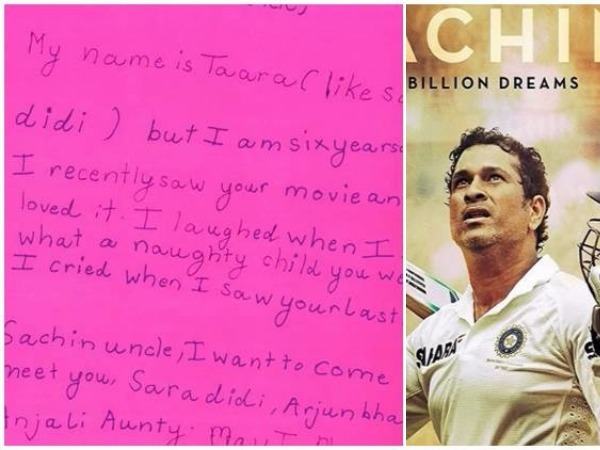 My name is Taara (like
didi) but I am six years
I recently saw your movie an
loved it. I laughed when I
what a naughty child you we
I cried when I saw your last
Sachin uncle, I want to come
meet you, Sara didi, Arjun bha
Anjali Aunty. May I
ACHI
BILLION DREAMS
SAHARA